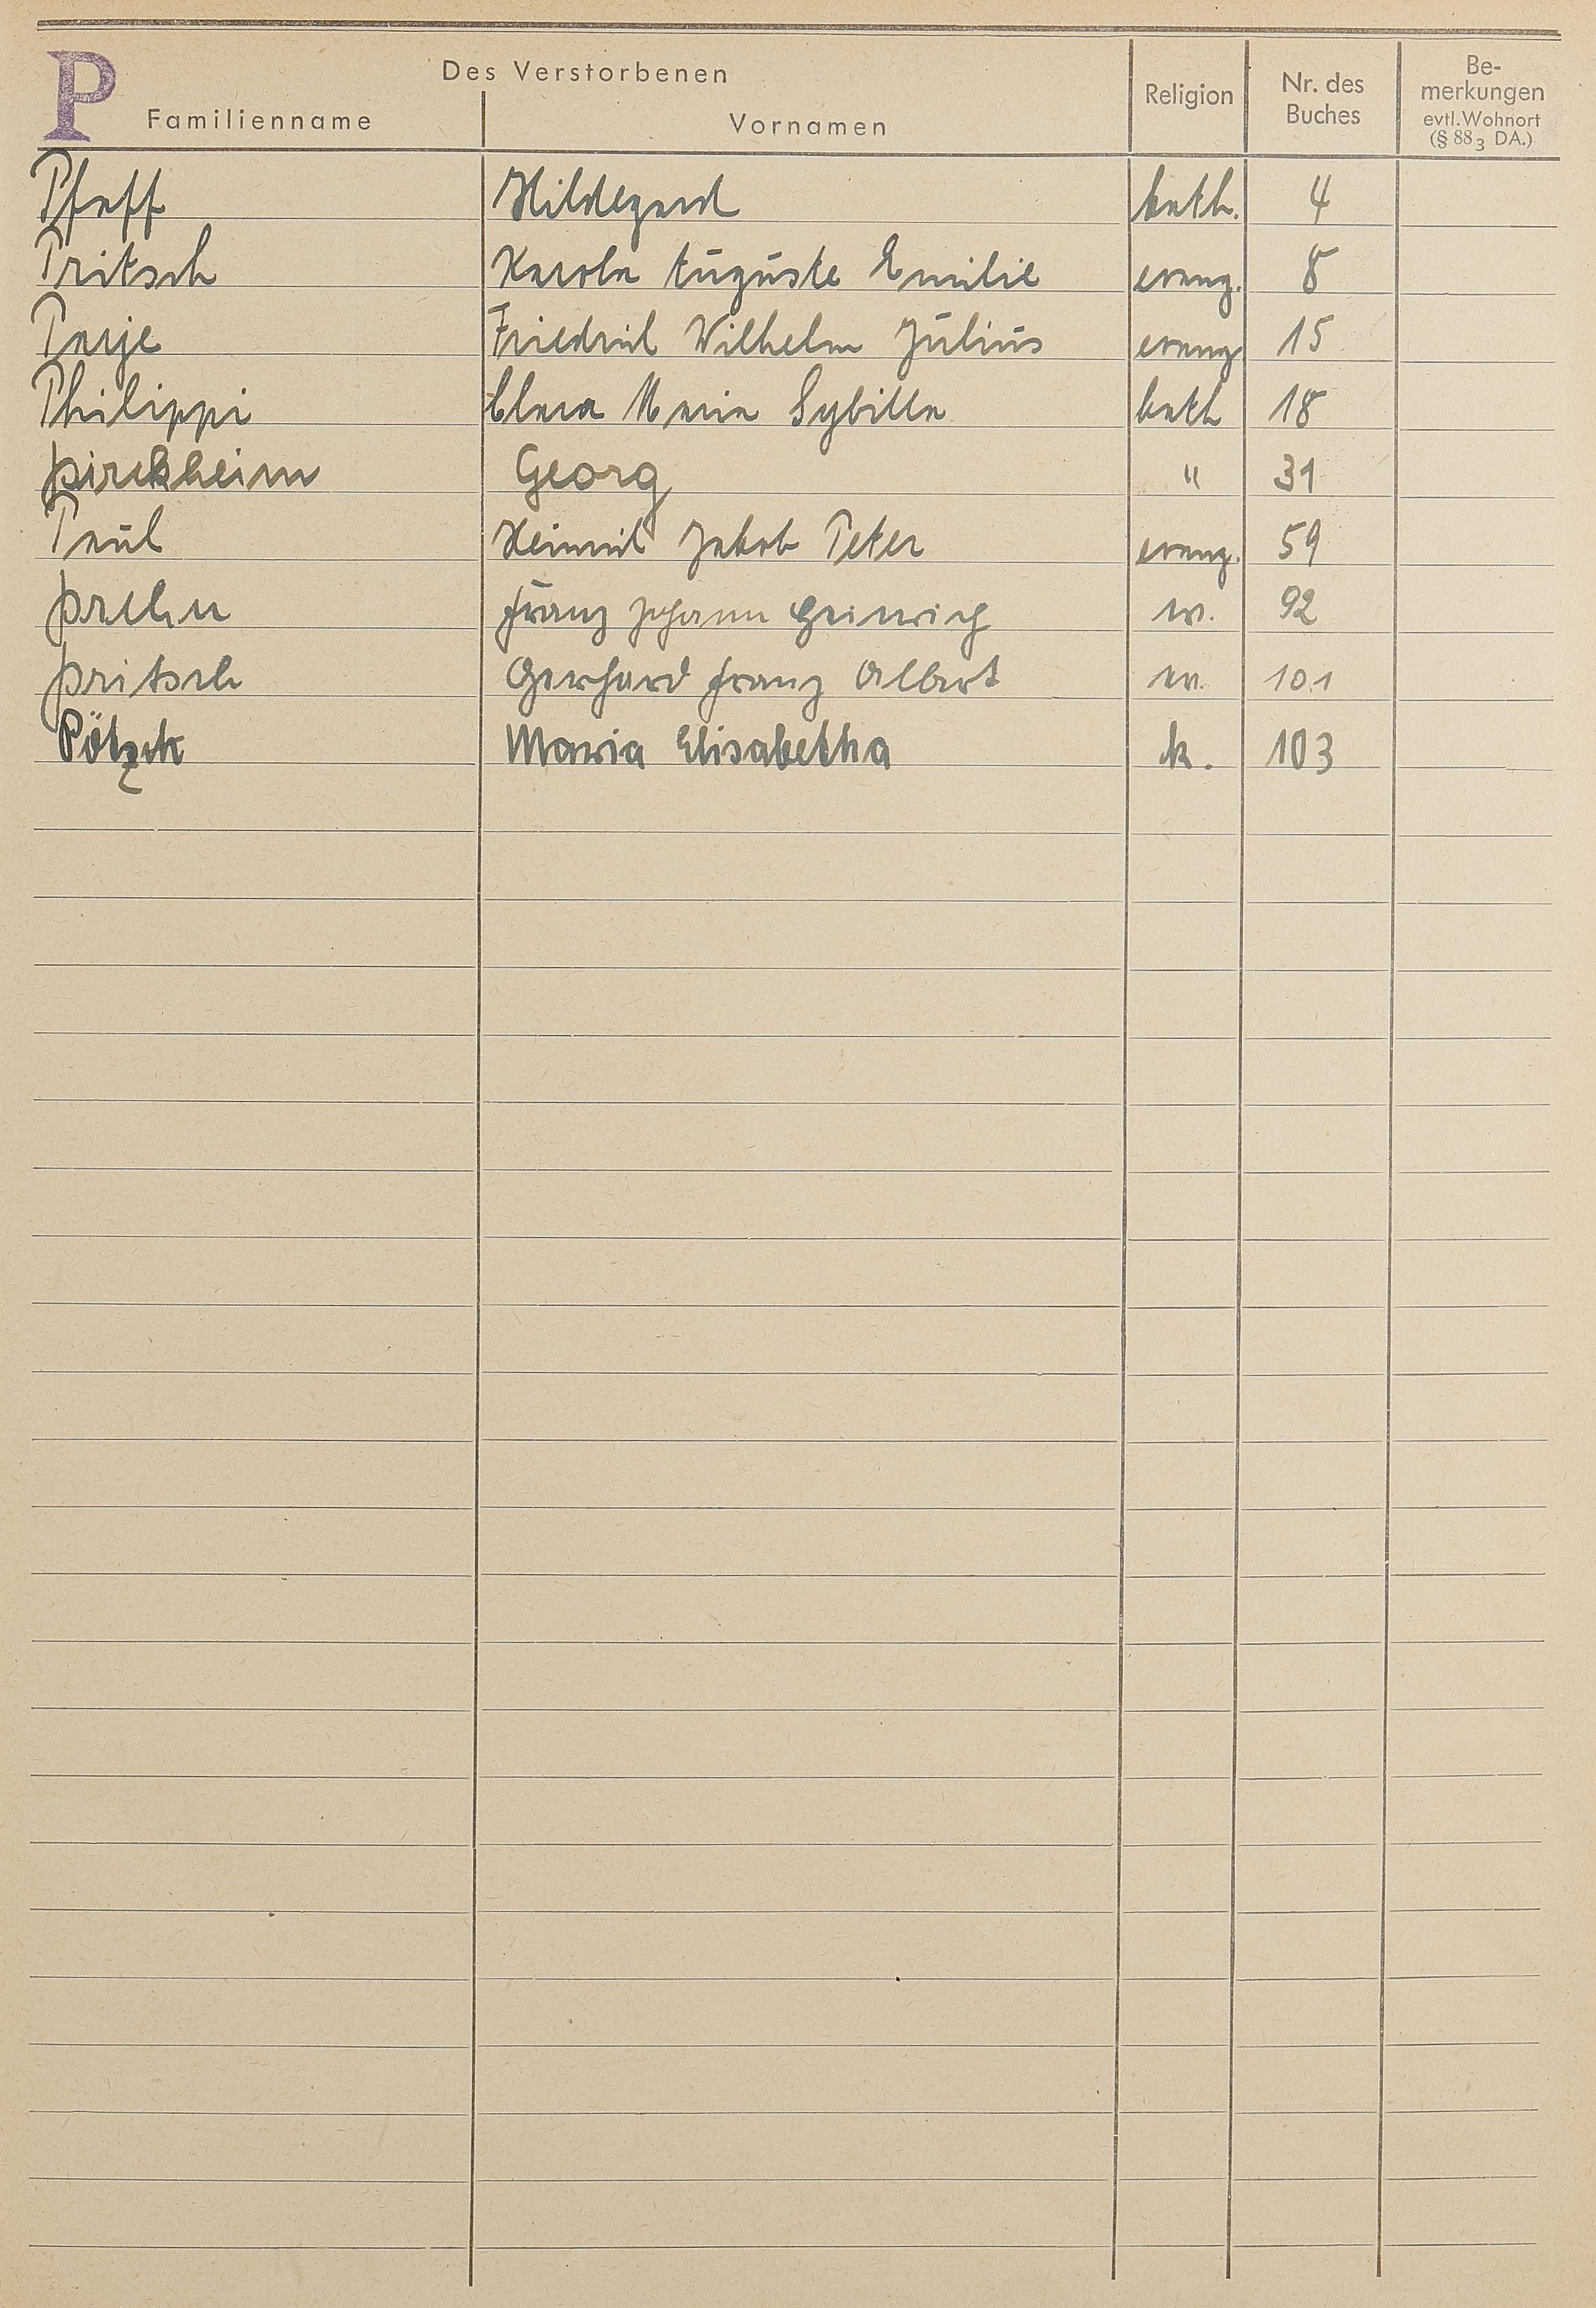 P
Des Verstorbenen
Familienname Vornamen Religion Nr. des Buches Be-merkungen evtl. Wohnort (§ 88 3 DA.)
Pfaff Hildegard kath. 4
Pritsch Karola Auguste Emilie evang. 8
Friedrich Wilhelm Julius evang 15
Philippi Clara Maria Sybilla kath 18
Pirckheim Georg " 31
Paul Heinrich Jakob Peter evang. 59
Prehn Franz Johann Heinrich ev. 92
Pritsch Gerhard Franz Albert ev. 101
Maria Elisabetha k. 103